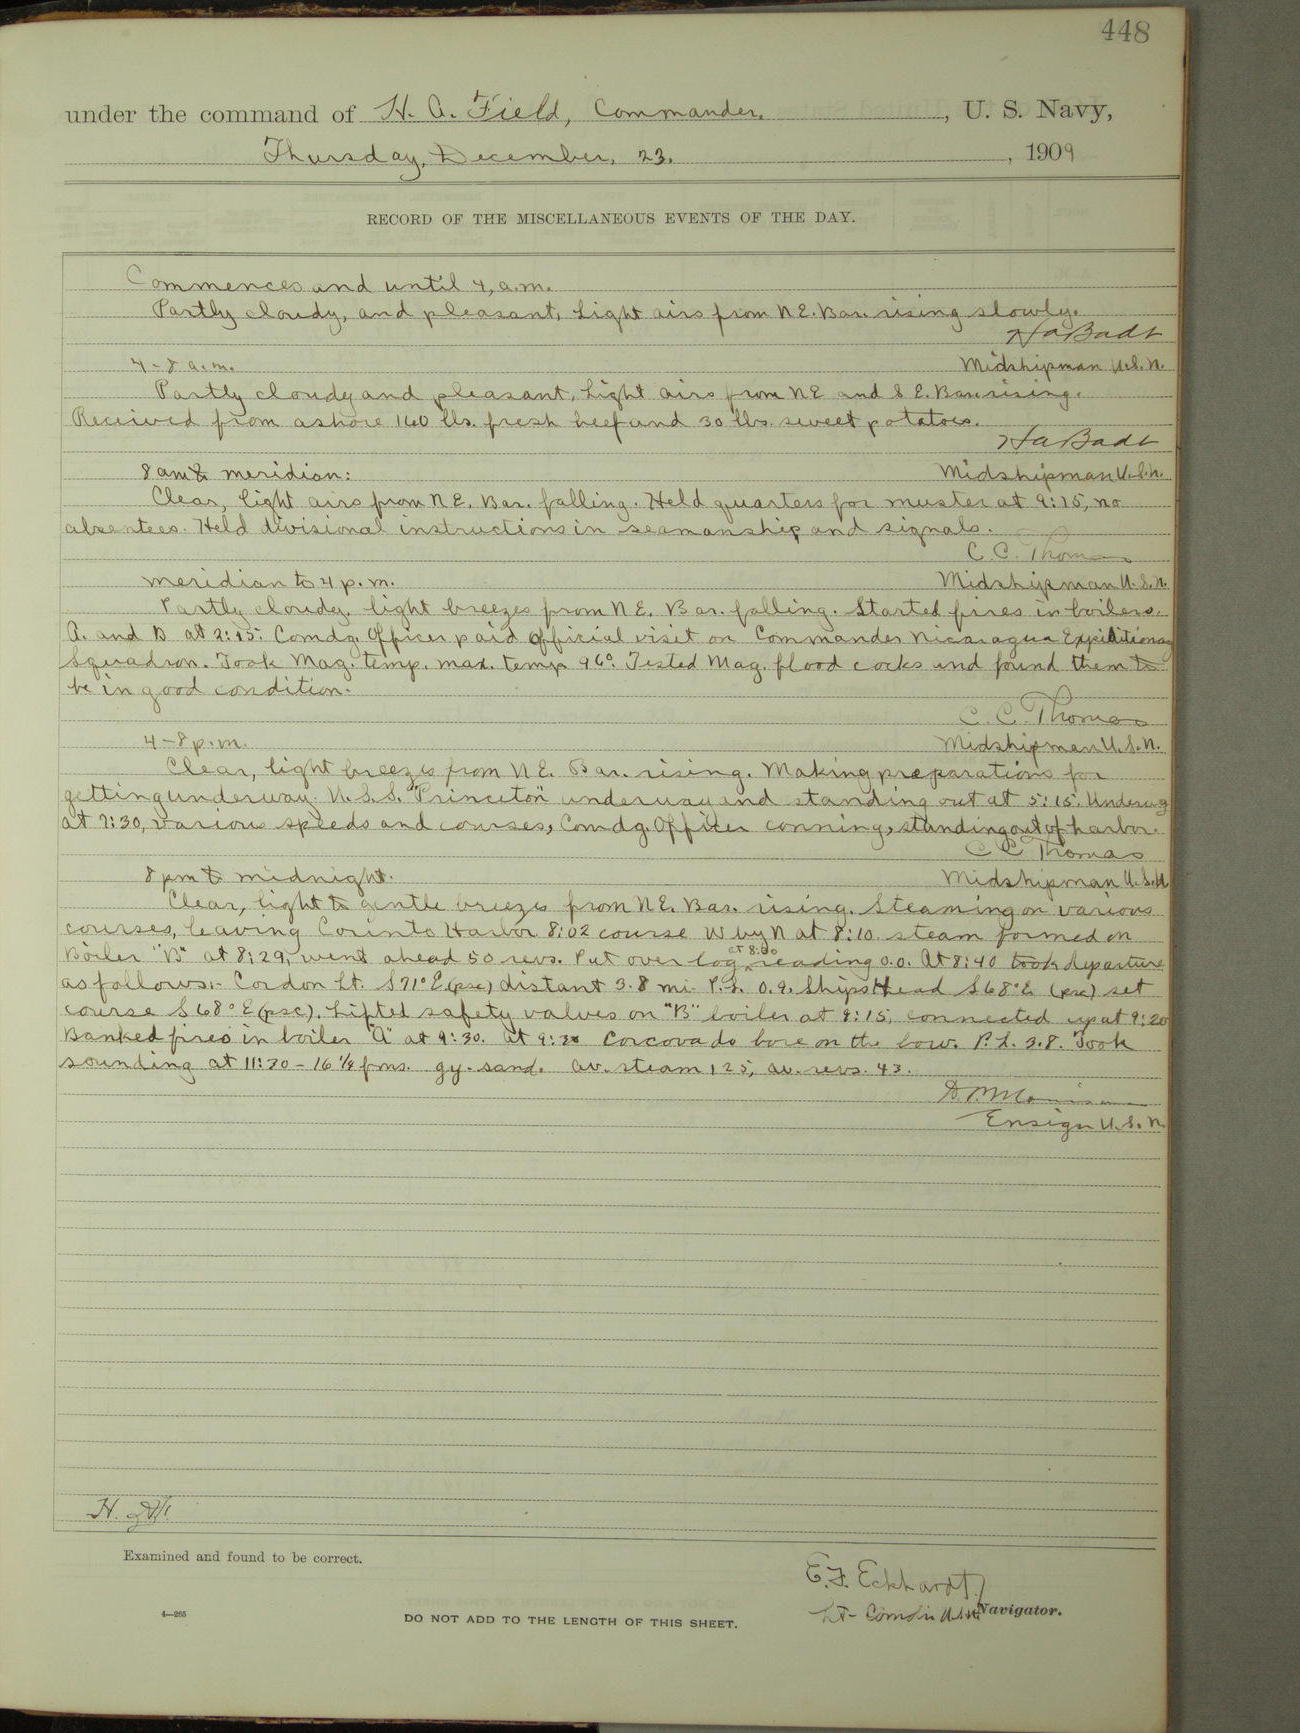 448
under the command of H. A. Field, Commander, , U. S. Navy,
Thursday, December, 23. , 1909
RECORD OF THE MISCELLANEOUS EVENTS OF THE DAY.
Commences and until 4, a.m.
Partly cloudy, and pleasant, Light airs from N E. Bar. rising slowly.
H a Badt
4-8 a.m. Midshipman U.S.N.
Partly cloudy and pleasant, Light airs from N E and S E. Bar. rising.
Received from ashore 160 lbs. fresh beef and 30 lbs. sweet potatoes.
H a Badt
8 am to meridian: Midshipman U.S.N.
Clear, light airs from N E. Bar. falling. Held quarters for muster at 9:15, no
absentees. Held divisional instructions in seamanship and signals.
C. C. Thomas
meridian to 4 p.m. Midshipman U.S.N.
Partly cloudy, light breezes from N E. Bar. falling. Started fires in boilers
A. and B at 2:45. Comdg. Officer paid official visit on Commander Nicaragua Expeditionary
Squadron. Took Mag. temp. max. temp 96°. Tested Mag. flood cocks and found them to
be in good condition.
C. C. Thomas
4-8 p.m. Midshipman U.S.N.
Clear, light breezes from N E. Bar. rising. Making preparations for
getting underway. U.S.S. "Princeton" underway and standing out at 5:15. Underway
at 7:30, various speeds and courses, Comdg. Officer conning, standing out of harbor.
C C Thomas
8 pm to midnight. Midshipman U.S.N
Clear, light to gentle breezes from N E. Bar. rising. Steaming on various
courses, leaving Corinto Harbor 8:02 course W by N at 8:10. steam formed on
Boiler "B" at 8:29, went ahead 50 revs. Put over log at 8:30 reading 0.0. At 8:40 took departure
as follows:- Cordon Lt. S 71° E (psc) distant 3.8 mi. P.L. 0.9. Ships Head S 68° E (psc) set
course S 68° E (psc). Lifted safety valves on "B" boiler at 9:15, connected up at 9:20
Banked fires in boiler "A" at 9:30. At 9:30 Corcovado bore on the bow. P.L. 3.8. Took
sounding at 11:30 - 16 1/4 fms. gy. sand. Av. steam 125, av. revs. 43.
Ensign U.S.N.
Examined and found to be correct.
E. F. Eckhardt
Lt- Comdr USN Navigator.
4—265
DO NOT ADD TO THE LENGTH OF THIS SHEET.